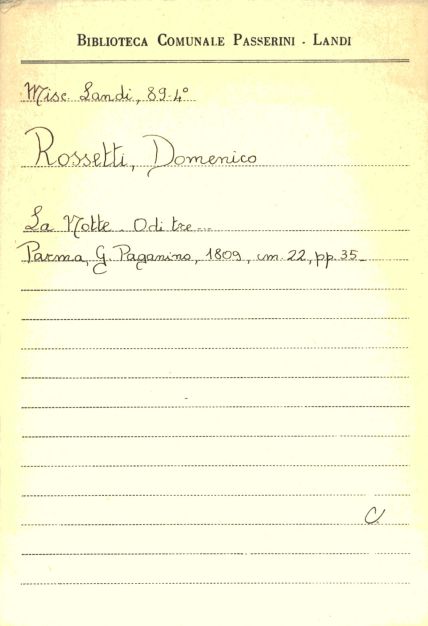 BIBLIOTECA COMUNALE PASSERINI - LANDI
Misc. Landi, 89-4°
Rossetti, Domenico
La Notte. Odi tre...
Parma, G. Paganino, 1809, cm. 22, pp. 35_
C